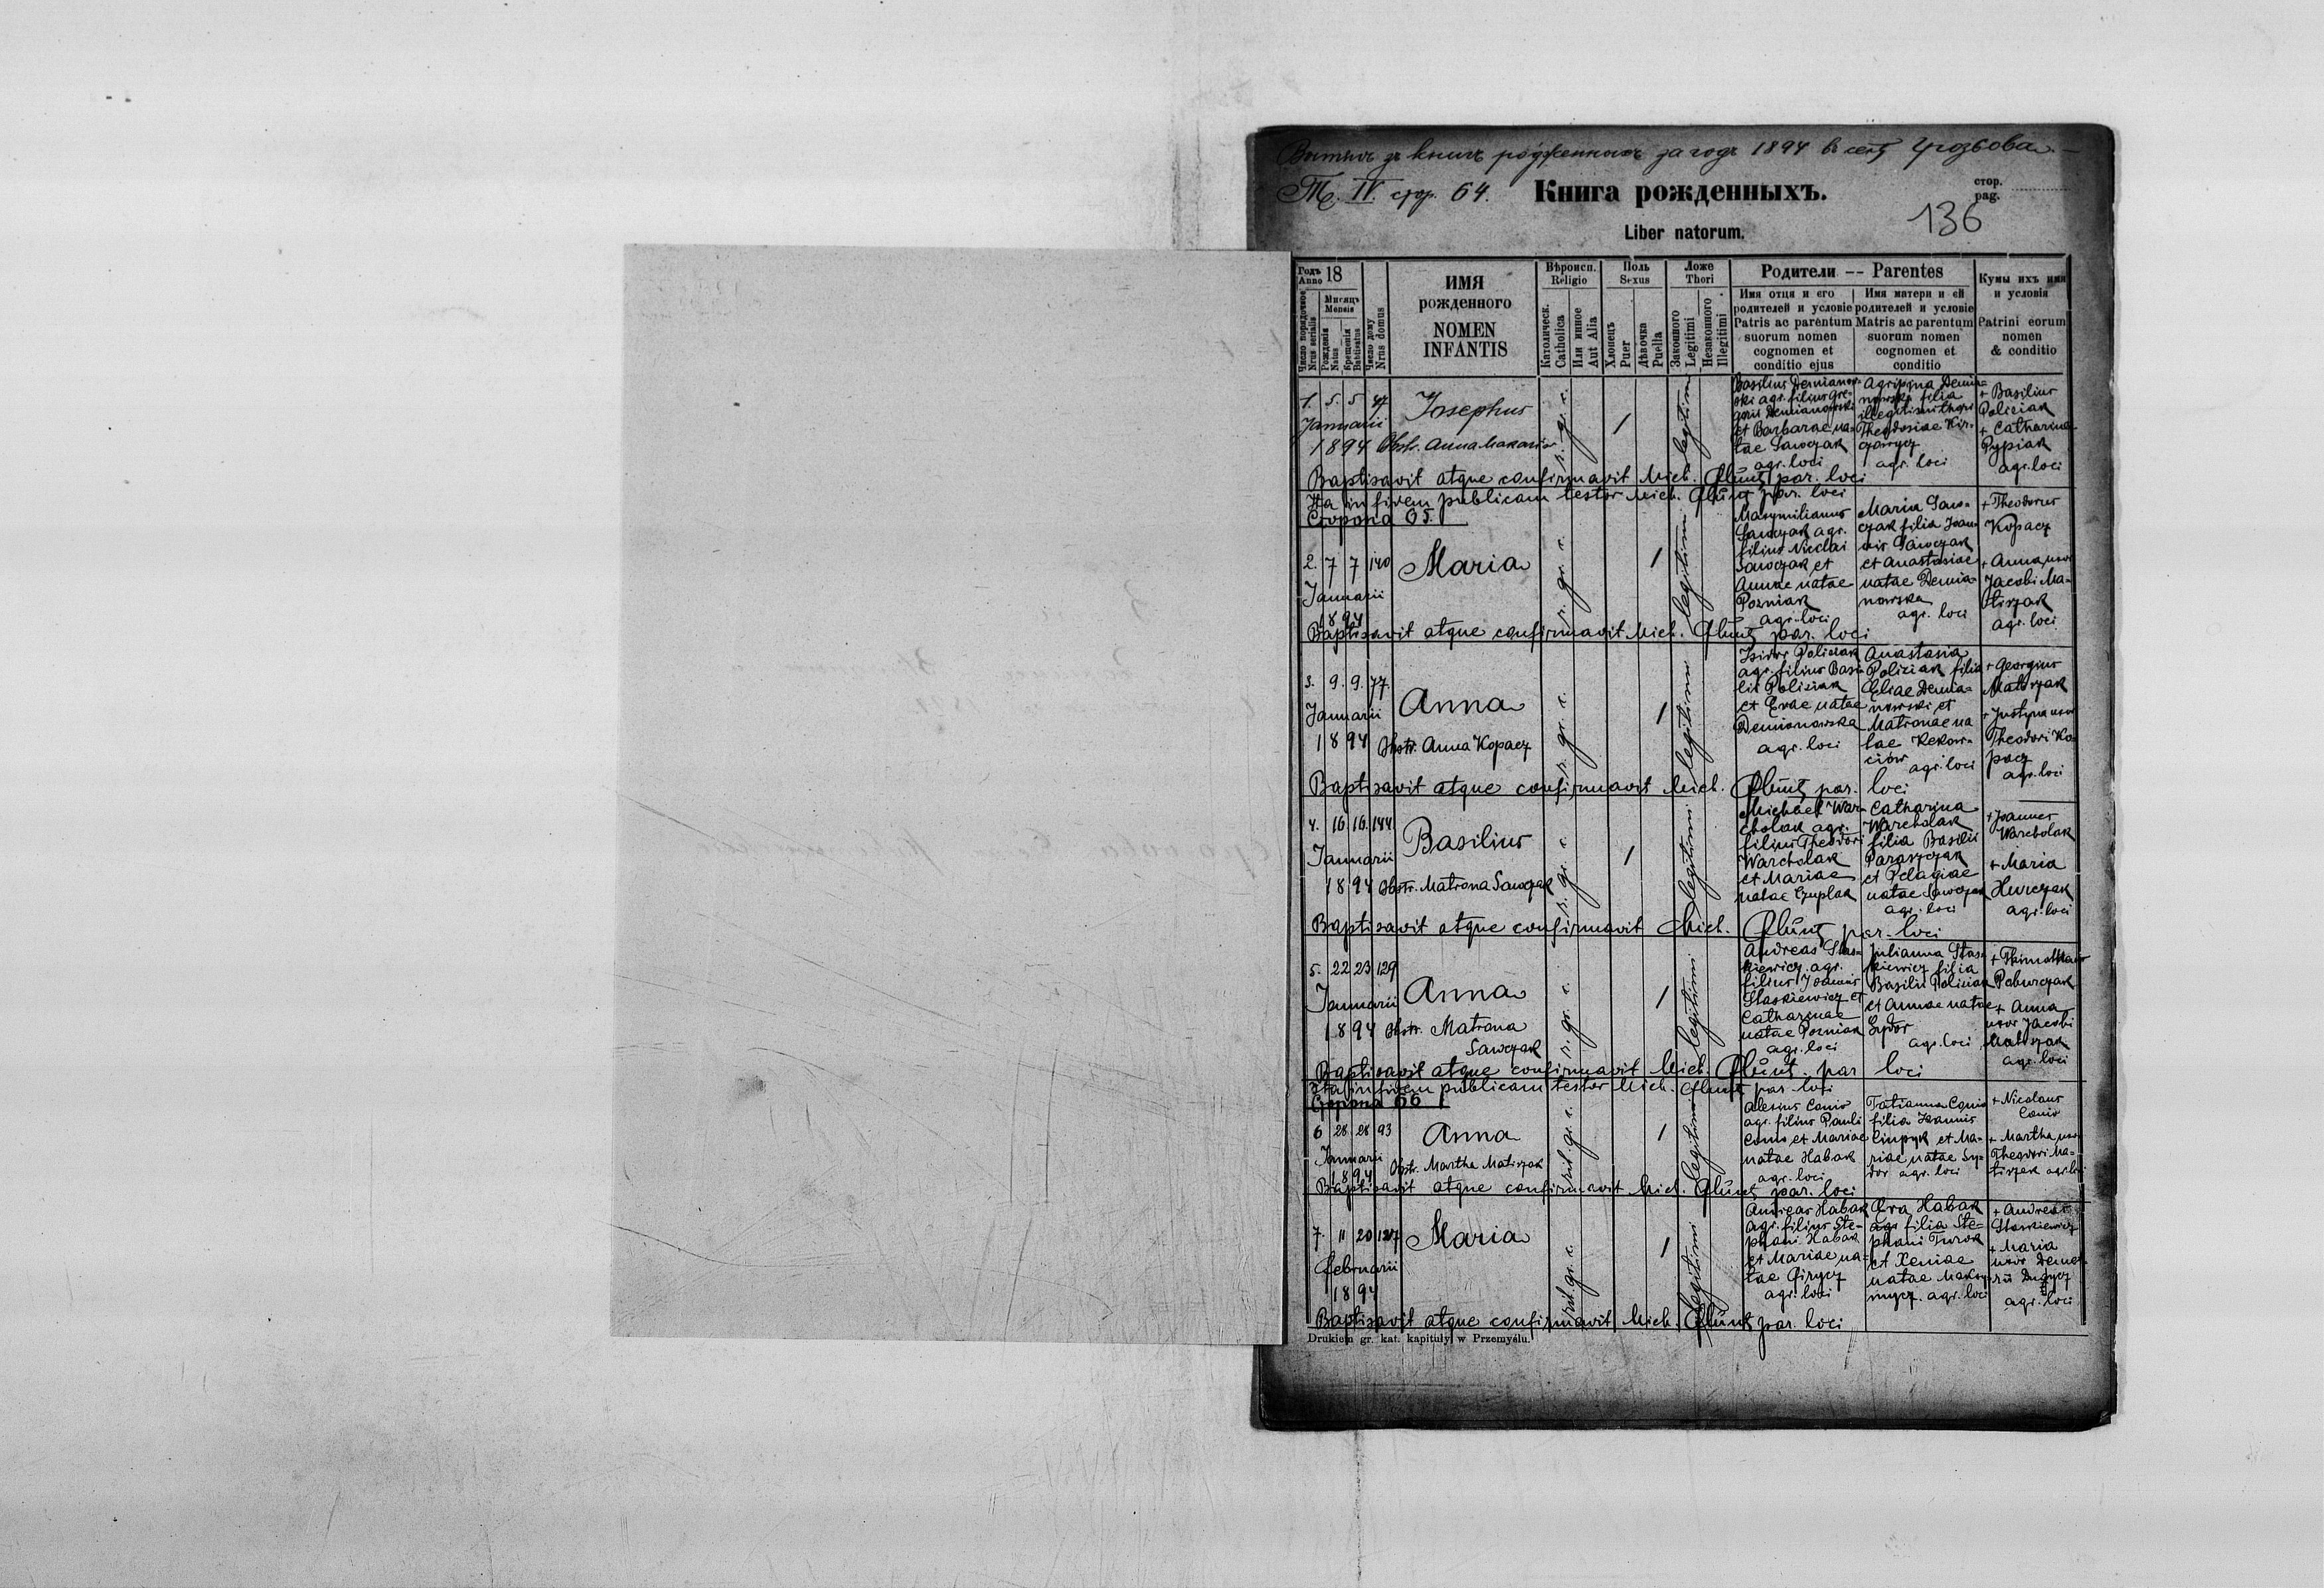 за годъ 1894
Т. IV. стор. 64. Книга рожденныхъ. стор. pag.
136
Liber natorum.
Годъ Anno 18
Число порядковое Nrus serialis
Мѣсяцъ Mensis
Рожденія Natus
Крещенія Baptisatus
Число дому Nrus domus
ИМЯ рожденного NOMEN INFANTIS
Вѣроисп. Religio
Католическ. Catholica
Или инное Aut Alia
Полъ Sexus
Хлопецъ Puer
Дѣвочка Puella
Ложе Thori
Законного Legitimi
Незаконного Illegitimi
Родители -- Parentes
Имя отця и его родителей и условіе Patris ac parentum suorum nomen cognomen et conditio ejus
Имя матери и ей родителей и условіе Matris ac parentum suorum nomen cognomen et conditio
Кумы ихъ имя и условія Patrini eorum nomen & conditio
1. 5. 5 47
Januarii
1894
Josephus
Obstr. Anna Makar
r. gr. c.
1
legitimi
Basilius Demianow-
ski agr. filius Gre-
gorii Demianowski
et Barbarae na-
tae Sawczak
agr. loci
Agripina Demia-
nowska filia
illegitimi thori
Theodosiae
agr. loci
+ Basilius
Poliziak
+ Catharina
Pypiak
agr. loci
Baptisavit atque confirmavit Mich. par. loci
Ita in fidem publicam testor Mich. par. loci
Сторона 65.
2. 7 7 140
Januarii
1894
Maria
r. gr. c.
1
legitimi
Maxymilianus
Sawczak agr.
filius Nicolai
Sawczak et
Annae natae
Pozniak
agr. loci
Maria Saw-
czak filia Joan-
nis Sawczak
et Anastasiae
natae Demia-
nowska
agr. loci
+ Theodorus
Kopacz
+ Anna uxor
Jacobi Ma-
tiszak
agr. loci
Baptisavit atque confirmavit Mich. par. loci
3. 9. 9. 77.
Januarii
1894
Anna
Obstr. Anna Kopacz
r. gr. c.
1
legitimi
Isidor Poliziak
agr. filius Basi-
lii Poliziak
et Evae natae
Demianowska
agr. loci
Anastasia
Poliziak filia
Eliae Demia-
nowski et
Matronae na
tae
agr. loci
+ Georgius
Matiszak
+ Justyna uxor
Theodori Ko-
pacz
agr. loci
Baptisavit atque confirmavit Mich. par. loci
4. 16 16. 144
Januarii
1894
Basilius
Obstr. Matrona Sawczak
r. gr. c.
1
legitimi
Michael War-
cholak agr.
filius Theodori
Warcholak
et Mariae
natae Czuplak
agr. loci
Catharina
Warcholak
filia Basilii
Paraszczak
et Pelagiae
natae Sawczak
agr. loci
+ Joannes
Warcholak
+ Maria
Hurczak
agr. loci
Baptisavit atque confirmavit Mich. par. loci
5. 22 23 129
Januarii
1894
Anna
Obstr. Matrona
Sawczak
r. gr. c.
1
legitimi
Andreas Stas-
kiewicz agr.
filius Joannis
Staskiewicz et
Catharinae
natae Pozniak
agr. loci
Julianna Stas-
kiewicz filia
Basilii Poliziak
et Annae natae
Sydor
agr. loci
+ Thimotheus
+ Anna
uxor Jacobi
Matiszak
agr. loci
Baptisavit atque confirmavit Mich. par loci
Ita in fidem publicam testor Mich. par. loci
Сторона 66
6 28 28 93
Januarii
1894
Anna
Obstr. Martha Matiszak
rit. gr. c.
1
legitimi
Alexius Canio
agr. filius Pauli
Canio et Mariae
natae Habak
agr. loci
Tatianna Canio
filia Joannis
et Ma-
riae natae Sy-
dor agr. loci
+ Nicolaus
Canio
+ Martha uxor
Theodori Ma-
tiszak agr. loci
Baptisavit atque confirmavit Mich. par. loci
7. 11 20 127
Februarii
1894
Maria
rit. gr. c.
1
legitimi
Andreas Habak
agr. filius Ste-
phani Habak
et Mariae na-
tae
agr. loci
Eva Habak
agr filia Ste-
phani Turok
et Xeniae
natae Maksy-
mycz. agr. loci
+ Andreas
Staskiewicz
+ Maria
uxor
agr. loci
Baptisavit atque confirmavit Mich. par. loci
Drukiem gr. kat. kapituły w Przemyślu.